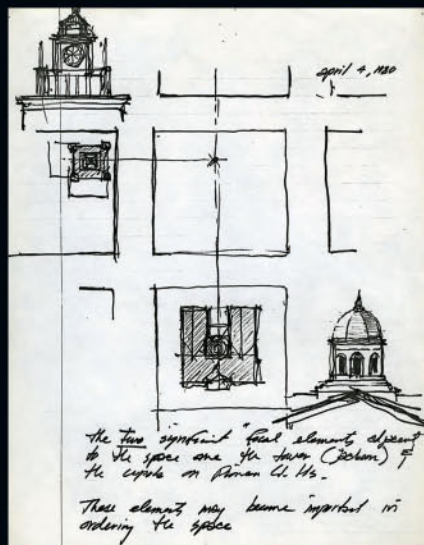 april 4, 1980
the two significant "focal elements adjacent
to the space are the tower ( ) &
the cupola on Ct. Hs.
These elements may become important in
ordering the space